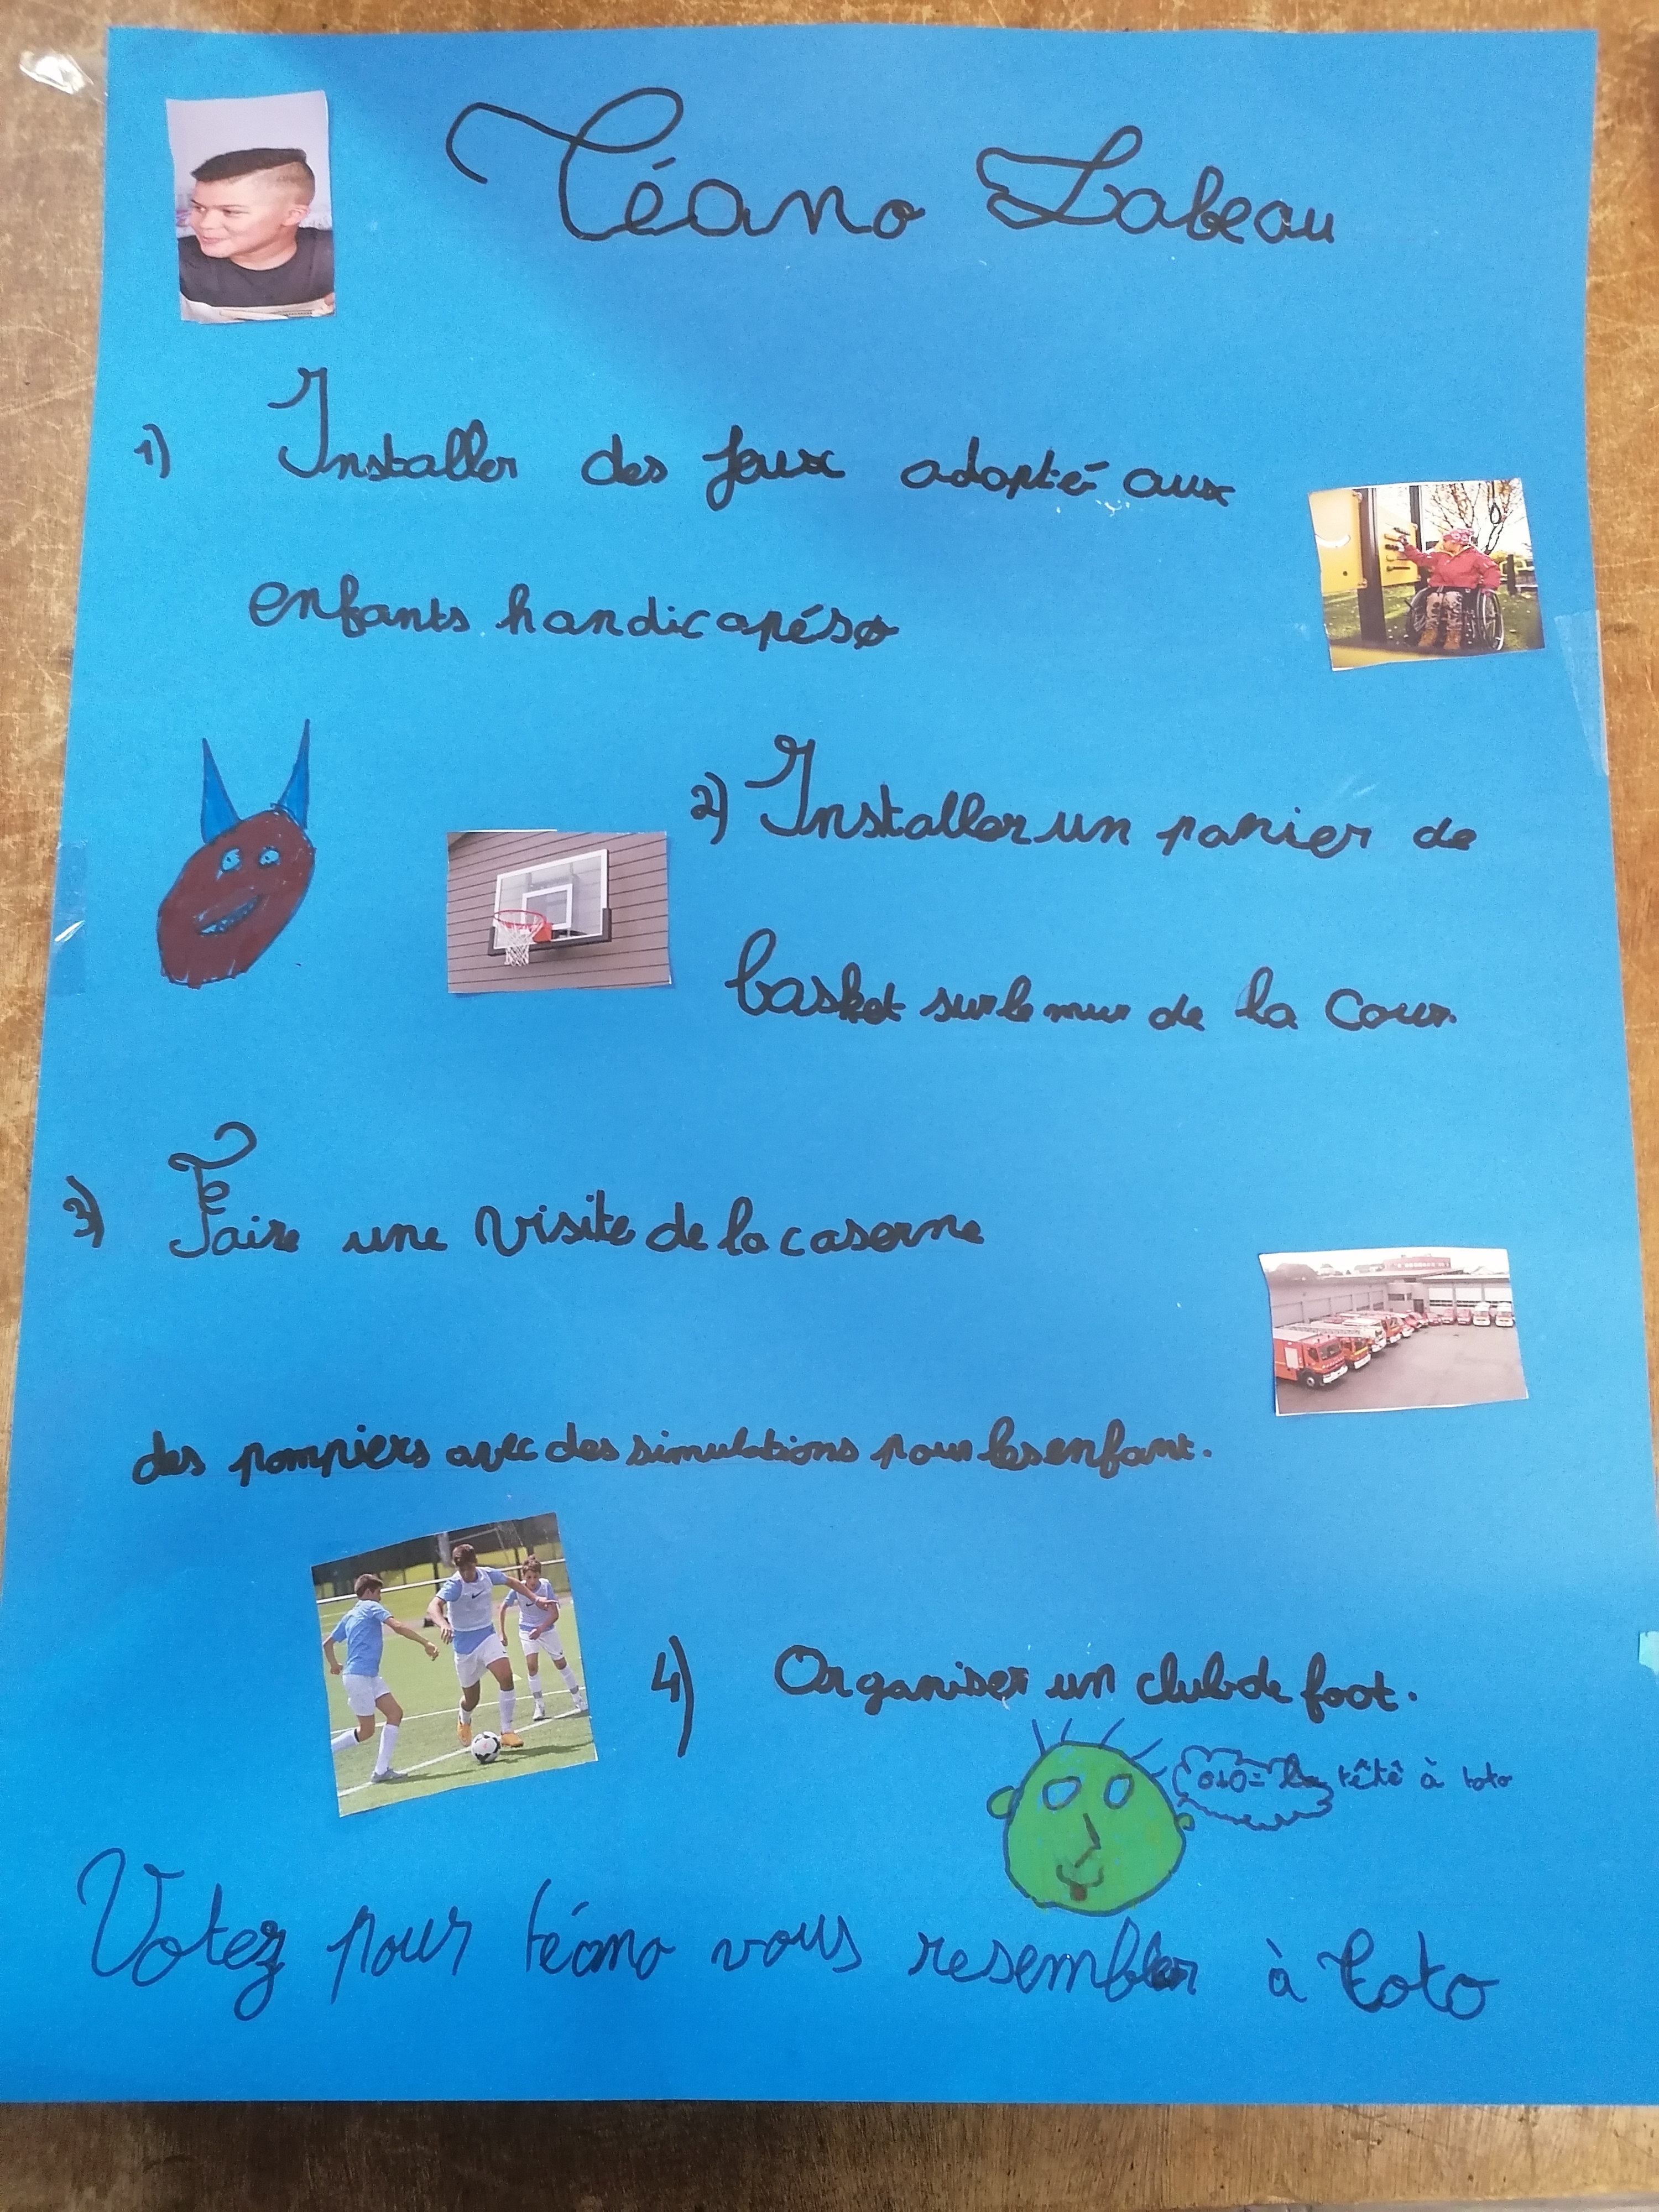 Téano Labeau
1) Installer des Jeux adapté aux
enfants handicapés
2) Installer un panier de
basket sur le mur de la Cour.
3) Faire une visite de la caserne
des pompiers avec des simulations pour les enfant.
4) Organiser un club de foot.
0+0= la têtê à toto
Votez pour téano vous resembler à toto